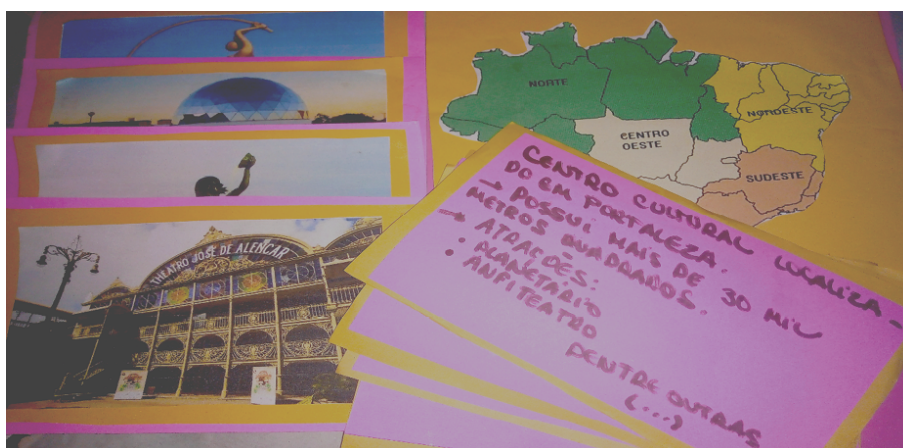 NORTE
NORDESTE
CENTRO
OESTE
SUDESTE
THEATRO JOSÉ DE ALENCAR
CENTRO CULTURAL LOCALIZA-
DO EM FORTALEZA.
→ POSSUI MAIS DE 30 MIL
METROS QUADRADOS.
→ ATRAÇÕES:
• PLANETÁRIO
• ANFITEATRO
DENTRE OUTRAS
(...)